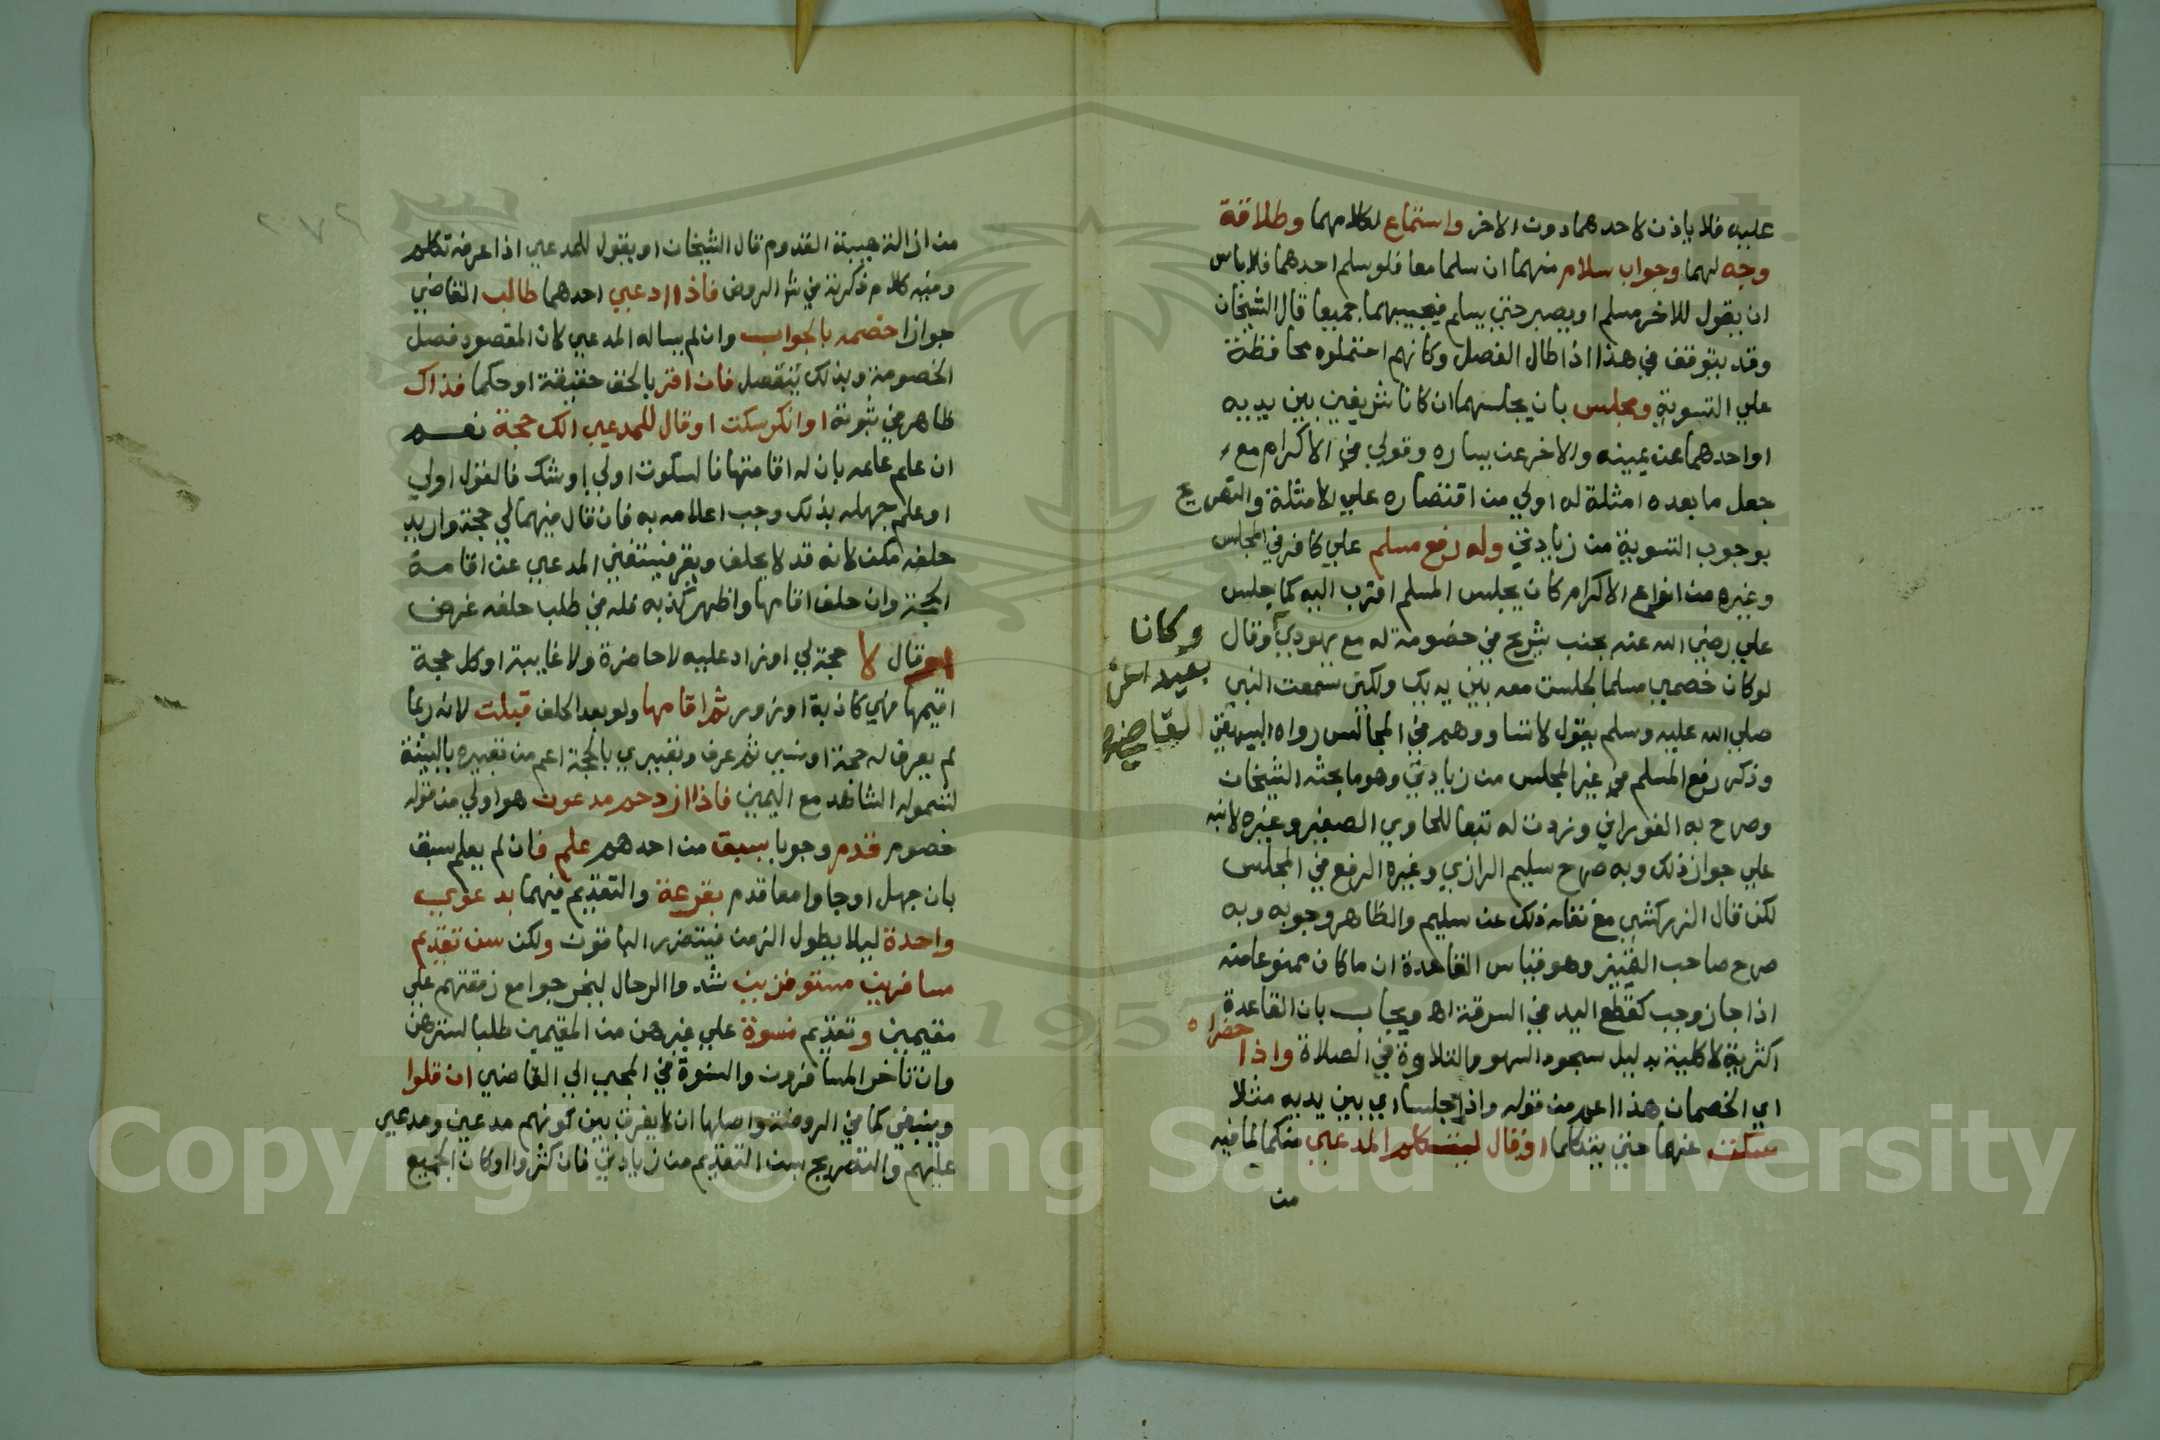 عليه فلا ياذن لاحدهما دون الاخر واستماع لكلامهما وطلاقة
وجه لهما وجواب سلام منهما ان سلما معا فلو سلم احدهما فلا باس
ان يقول للاخر سلم او يصبر حتي يسلم فيجيبهما جميعا قال الشيخان
وقد يتوقف في هذا اذا طال الفصل وكانهم احتملوه محافظة
علي التسوية ومجلس بان يجلسهما ان كانا شريفين بين يديه
او احدهما عن يمينه والاخر عن يساره وقولي في الاكرام مع
جعل ما بعده امثلة له اولي من اقتصاره علي الامثلة والتصريح
بوجوب التسوية من زيادتي وله رفع مسلم علي كافر في المجلس
وغيره من انواع الاكرام كان يجلس المسلم اقرب اليه كما جلس
علي رضي الله عنه بجنب شريح في خصومة له مع يهودي وقال
لو كان خصمي مسلما لجلست معه بين يديك ولكني سمعت النبي
صلي الله عليه وسلم يقول لا تساووهم في المجالس رواه البيهقي
وذكر رفع المسلم في غير المجلس من زيادتي وهو ما بحثه الشيخان
وصرح به الفوراني وزدت له تبعا للحاوي الصغير وغيره لانبه
علي جواز ذلك وبه صرح سليم الرازي وغيره الرفع في المجلس
لكن قال الزركشي مع نقله ذلك عن سليم والظاهر وجوبه وبه
صرح صاحب التمييز وهو قياس القاعدة ان ما كان ممنوعا منه
اذا جاز وجب كقطع اليد في السرقة اه ويجاب بان القاعدة
اكثرية لا كلية بدليل سجود السهو والتلاوة في الصلاة واذا حضراه
اي الخصمان هذا اعم من قوله واذا جلسا اي بين يديه مثلا
سكت عنهما حتي يتكلما او قال ليتكلم المدعي منكما لما فيه
من
وكانا
بعيدا عن
القاضي
من ازالة هيبة القدوم قال الشيخان او يقول للمدعي اذا عرفه تكلم
وفيه كلام ذكرته في شرح الروض فاذا ادعي احدهما طالب القاضي
جوازا خصمه بالجواب وان لم يساله المدعي لان المقصود فصل
الخصومة وبذلك تنفصل فان اقر بالحق حقيقة او حكما فذاك
ظاهر في ثبوته او انكر سكت او قال للمدعي الك حجة نعم
ان علم علمه بان له اقامتها فالسكوت اولي او شك فالقول اولي
او علم جهله بذلك وجب اعلامه به فان قال فيهما لي حجة واريد
حلفه مكن لانه قد لا يحلف ويقر فيستغني المدعي عن اقامة
الحجة وان حلف اقامها واظهر كذبه فله في طلب حلفه غرض
او قال لا حجة لي او زاد عليه لا حاضرة ولا غايبة او كل حجة
اقيمها فهي كاذبة او زور ثم اقامها ولو بعد الحلف قبلت لانه ربما
لم يعرف له حجة او نسي ثم عرف وتعبيري بالحجة اعم من تعبيره بالبينة
لشموله الشاهد مع اليمين فاذا ازدحم مدعون هو اولي من قوله
خصوم قدم وجوبا بسبق من احدهم علم فان لم يعلم سبق
بان جهل او جاوا معا قدم بقرعة والتقديم فيهما بدعوي
واحدة ليلا يطول الزمن فيتضرر الباقون ولكن سن تقديم
مسافرين مستوفزين شدوا الرحال ليخرجوا مع رفقتهم علي
مقيمين وتقديم نسوة علي غيرهن من المقيمين طلبا لسترهن
وان تاخر المسافرون والنسوة في المجي الي القاضي ان قلوا
وينبغي كما في الروضة واصلها ان لا يفرق بين كونهم مدعين ومدعي
عليهم والتصريح بسن التقديم من زيادتي فان كثروا او كان الجميع
Copyright © King Saud University
1957